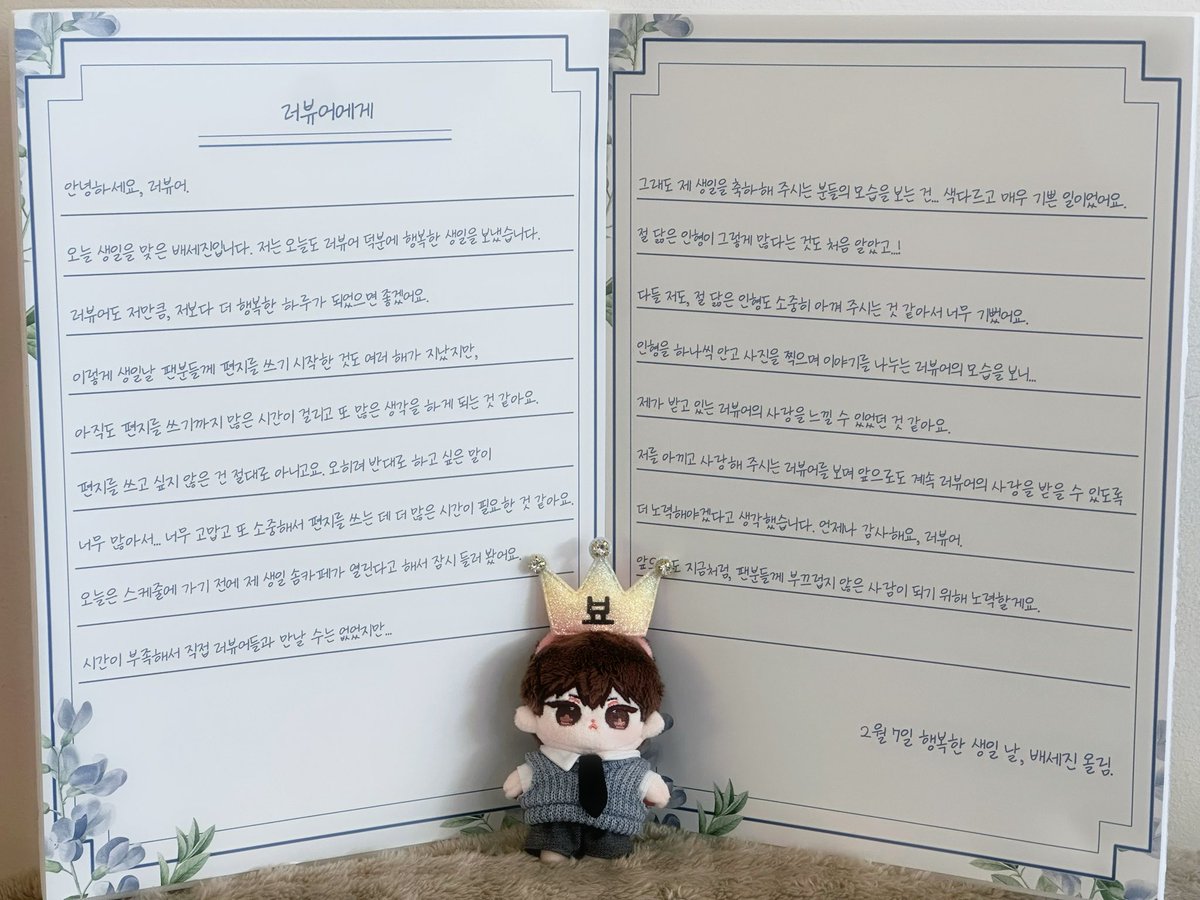 러뷰어에게
안녕하세요, 러뷰어.
오늘 생일을 맞은 배세진입니다. 저는 오늘도 러뷰어 덕분에 행복한 생일을 보냈습니다.
러뷰어도 저만큼, 저보다 더 행복한 하루가 되었으면 좋겠어요.
이렇게 생일날 팬분들께 편지를 쓰기 시작한 것도 여러 해가 지났지만,
아직도 편지를 쓰기까지 많은 시간이 걸리고 또 많은 생각을 하게 되는 것 같아요.
편지를 쓰고 싶지 않은 건 절대로 아니고요. 오히려 반대로 하고 싶은 말이
너무 많아서... 너무 고맙고 또 소중해서 편지를 쓰는 데 더 많은 시간이 필요한 것 같아요.
오늘은 스케줄에 가기 전에 제 생일 솜카페가 열린다고 해서 잠시 들러 봤어요.
시간이 부족해서 직접 러뷰어들과 만날 수는 없었지만...
그래도 제 생일을 축하해 주시는 분들의 모습을 보는 건... 색다르고 매우 기쁜 일이었어요.
절 닮은 인형이 그렇게 많다는 것도 처음 알았고...!
다들 저도, 절 닮은 인형도 소중히 아껴 주시는 것 같아서 너무 기뻤어요.
인형을 하나씩 안고 사진을 찍으며 이야기를 나누는 러뷰어의 모습을 보니...
제가 받고 있는 러뷰어의 사랑을 느낄 수 있었던 것 같아요.
저를 아끼고 사랑해 주시는 러뷰어를 보며 앞으로도 계속 러뷰어의 사랑을 받을 수 있도록
더 노력해야겠다고 생각했습니다. 언제나 감사해요, 러뷰어.
지금처럼, 팬분들께 부끄럽지 않은 사람이 되기 위해 노력할게요.
2월 7일 행복한 생일 날, 배세진 올림.
뵤